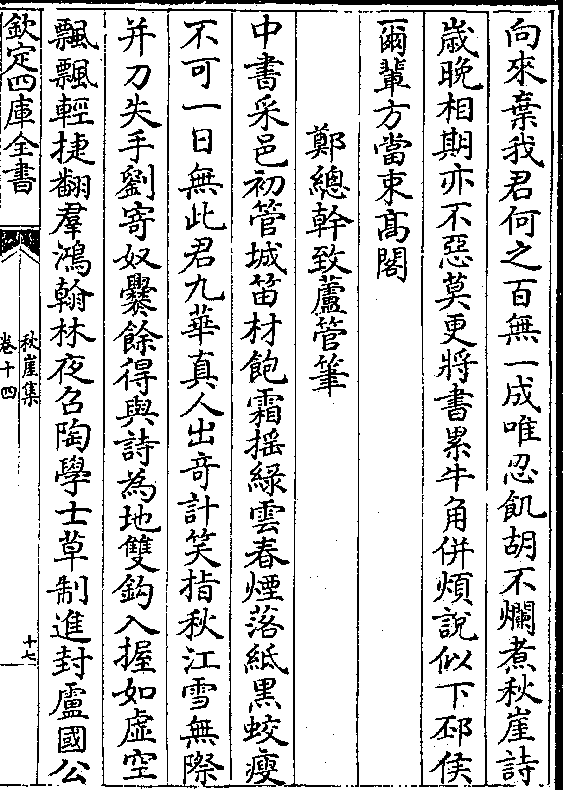 向來棄我君何之百無一成唯忍飢胡不爛煮秋崖詩
歲晚相期亦不惡莫更將書累牛角併煩說似下邳侯
爾輩方當束髙閣
鄭總幹致蘆管筆
中書采邑初管城笛材飽霜揺綠雲春煙落紙黒蛟瘦
不可一日無此君九華真人出竒計笑指秋江雪無際
并刀失手劉寄奴爨餘得與詩為地雙鈎入握如虛空
飄飄輕捷翻羣鴻翰林夜召陶學士草制進封盧國公
欽定四庫全書
秋崖集
卷十四
十七